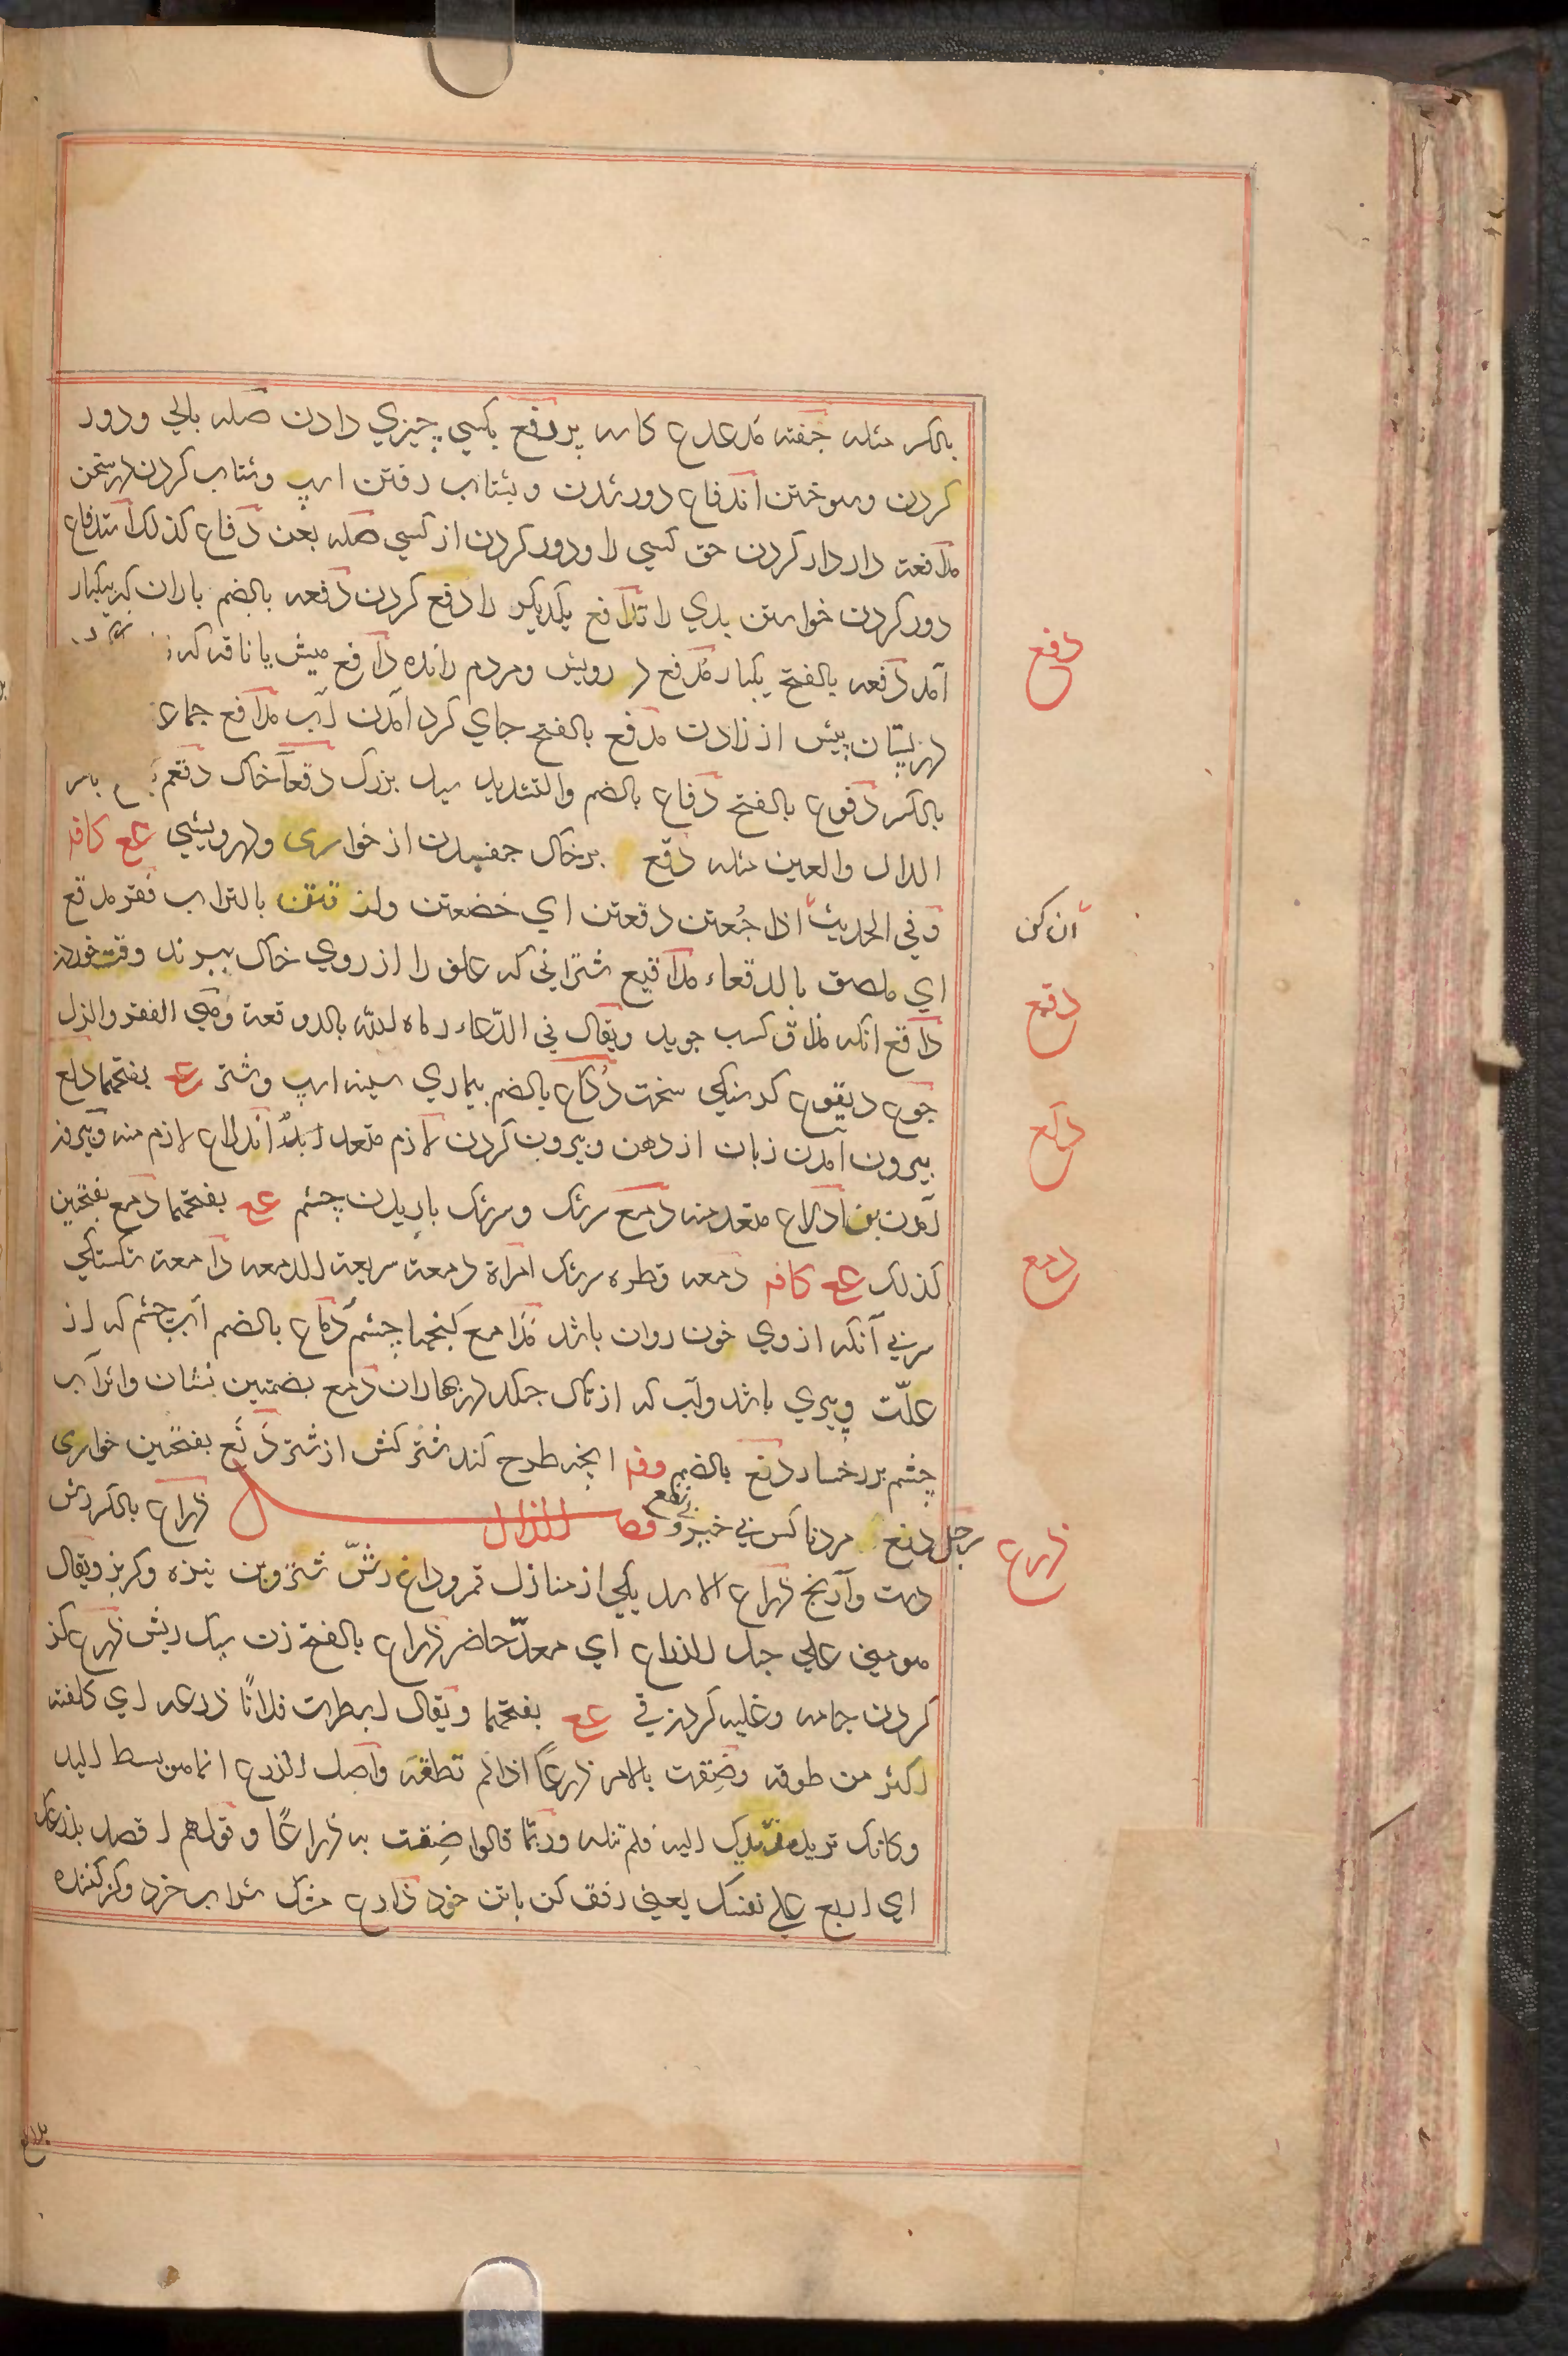 بالکسر مثله جفته مدعدع کاسه پر دفع بکسی چیزی دادن صله بالی و دور
کردن و سوختن اندفاع دور شدن و بشتاب رفتن اسپ و شتاب کردن در سخن
مدافعة دار دار کردن حق کسی را و دور کردن از کسی صله بعن دفاع کذلک استدفاع
دور کردن خواستن بدی را تدافع یکدیگر را دفع کردن دفعه بالضم باران که بیکبار
آمد دفعه بالفتح یکبار مدفع درویش و مردم رانده دافع میش یا ناقه که
در پستان پیش از زادن مدفع بالفتح جای گرد آمدن آب مدافع جماعة
بالکسر دفوع بالفتح دفاع بالضم والتشدید سیل بزرگ دقعآ خاک دقعم
الدال والعین مثله دقع بر خاک جفسیدن از خواری و درویشی عع کافه
وفی الحدیث اذا جُعتن دقعتن ای خضعتن ولزقتن بالتراب فقر مدقع
ای ملصق بالدقعاء مداقیع شترانی که علف را از روی خاک ببرند وقت خوردن
داقع انکه مذاق کسب جوید ویقال فی الدّعاء رماه لله بالدوقعة وهی الفقر والذل
جوع دیقوع گرسنگی سخت دُکاع بالضم بیماری سینه اسپ و شتر عع بفتحهما دلع
بیرون آمدن زبان از دهن و بیرون کردن لازم متعد ابلدُ اندلاع لازم منه وبیرون
آمدن بعن ادلاع متعد منه دمع سرشک و سرشک باریدن چشم عع بفتحهما دمع بفتحین
کذلک عع کافه دمعه قطره سرشک امراة دمعة سریعة للدمعه دامعة شکستگی
سریی آنکه از وی خون روان باشد مدامع کنجها چشم دُماع بالضم آب چشم که از
علّت و پیری باشد و آب که از تاک چکد در بهاران دمع بضمتین نشان و اثر آب
چشم بر رخسار دنع بالضم وفه انچه طرح کند شتر کش از شتر دَنَع بفتحتین خواری
رجل دنع مرد ناکس بی خبر و بی طمع فصل الذال ذراع بالکسر رش
دست و آرنج ذراع الاسد یکی از منازل قمر و داغ رشّ شتر و بن نیزه و کریز ویقال
هو منی علی حبل الذراع ای معدّ حاضر ذراع بالفتح زن سبک ریش ذرع گز
کردن جامه و غلبه کردن قی عع بفتحهما ویقال ابطرت فلانًا ذرعه ای کلفته
اکثر من طوقه وضِقت بالامر ذرعًا اذا لم تطقه واصل الذرع انما هو بسط الید
وکانک ترید مدّ یدک الیه فلم تنله وربّما قالوا ضِقت به ذراعًا وقولهم اقصد بذرعک
ای اربع علی نفسک یعنی رفق کن با تن خود ذارع مشک شراب خرد و گز کننده
دفع
ان کن
دقع
دلع
دمع
ذرع